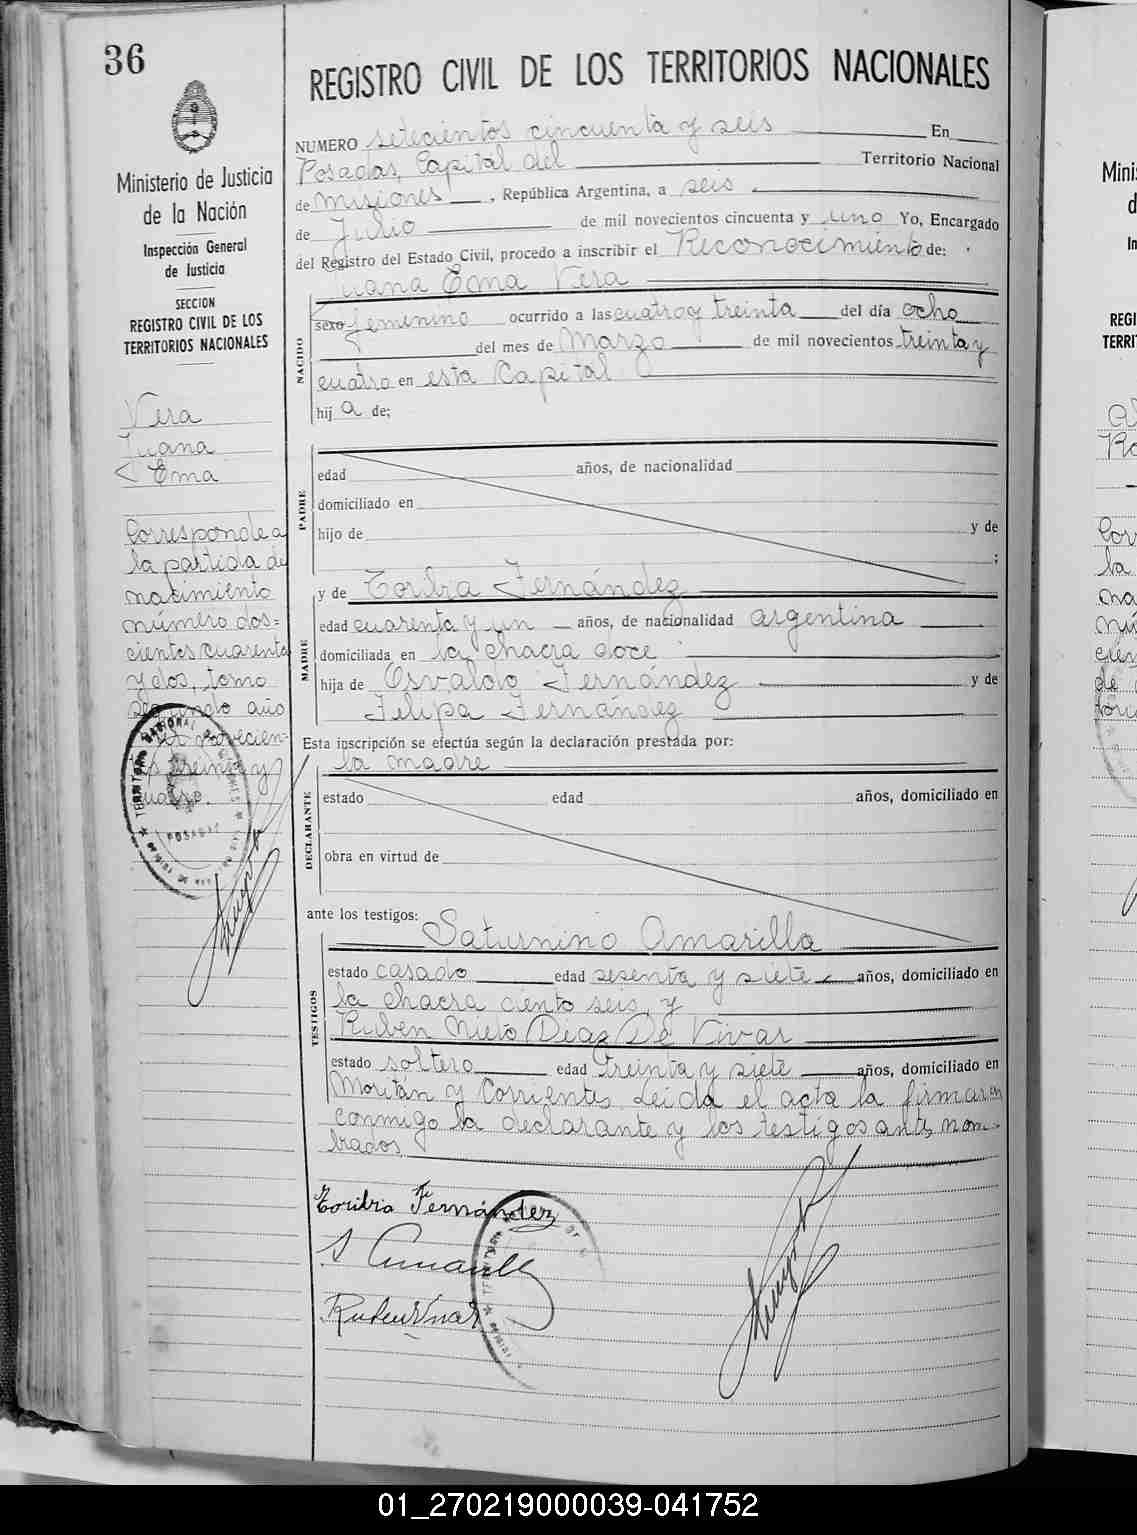 36
REGISTRO CIVIL DE LOS TERRITORIOS NACIONALES
Ministerio de Justicia
de la Nación
Inspección General
de Justicia
SECCION
REGISTRO CIVIL DE LOS
TERRITORIOS NACIONALES
Vera
Juana
Ema
Corresponde a
la partida de
nacimiento
número dos=
cientos cuarenta
y dos, tomo
segundo año
mil novecien-
tos treinta y
cuatro.
NUMERO setecientos cincuenta y seis En
Posadas, Capital del Territorio Nacional
de Misiones, República Argentina, a seis
de Julio de mil novecientos cincuenta y uno Yo, Encargado
del Registro del Estado Civil, procedo a inscribir el Reconocimiento de:
Juana Ema Vera
NACIDO
sexo femenino ocurrido a las cuatro y treinta del día ocho
del mes de Marzo de mil novecientos treinta y
cuatro en esta Capital
hij a de;
PADRE
edad años, de nacionalidad
domiciliado en
hijo de y de
;
y de Toribia Fernández
MADRE
edad cuarenta y un años, de nacionalidad argentina
domiciliada en la chacra doce
hija de Osvaldo Fernández y de
Felipa Fernández
Esta inscripción se efectúa según la declaración prestada por:
la madre
DECLARANTE
estado edad años, domiciliado en
obra en virtud de
ante los testigos:
Saturnino Amarilla
TESTIGOS
estado casado edad sesenta y siete años, domiciliado en
la chacra ciento seis, y
Rubén Nieto Díaz De Vivar
estado soltero edad treinta y siete años, domiciliado en
Moritán y Corrientes. Leida el acta la firmaron
conmigo la declarante y los testigos antes nom-
brados.
Toribia Fernández
S Amarilla
Ruben Vivar
POSADAS
Mini
d
In
REGI
TERRI
01_270219000039-041752